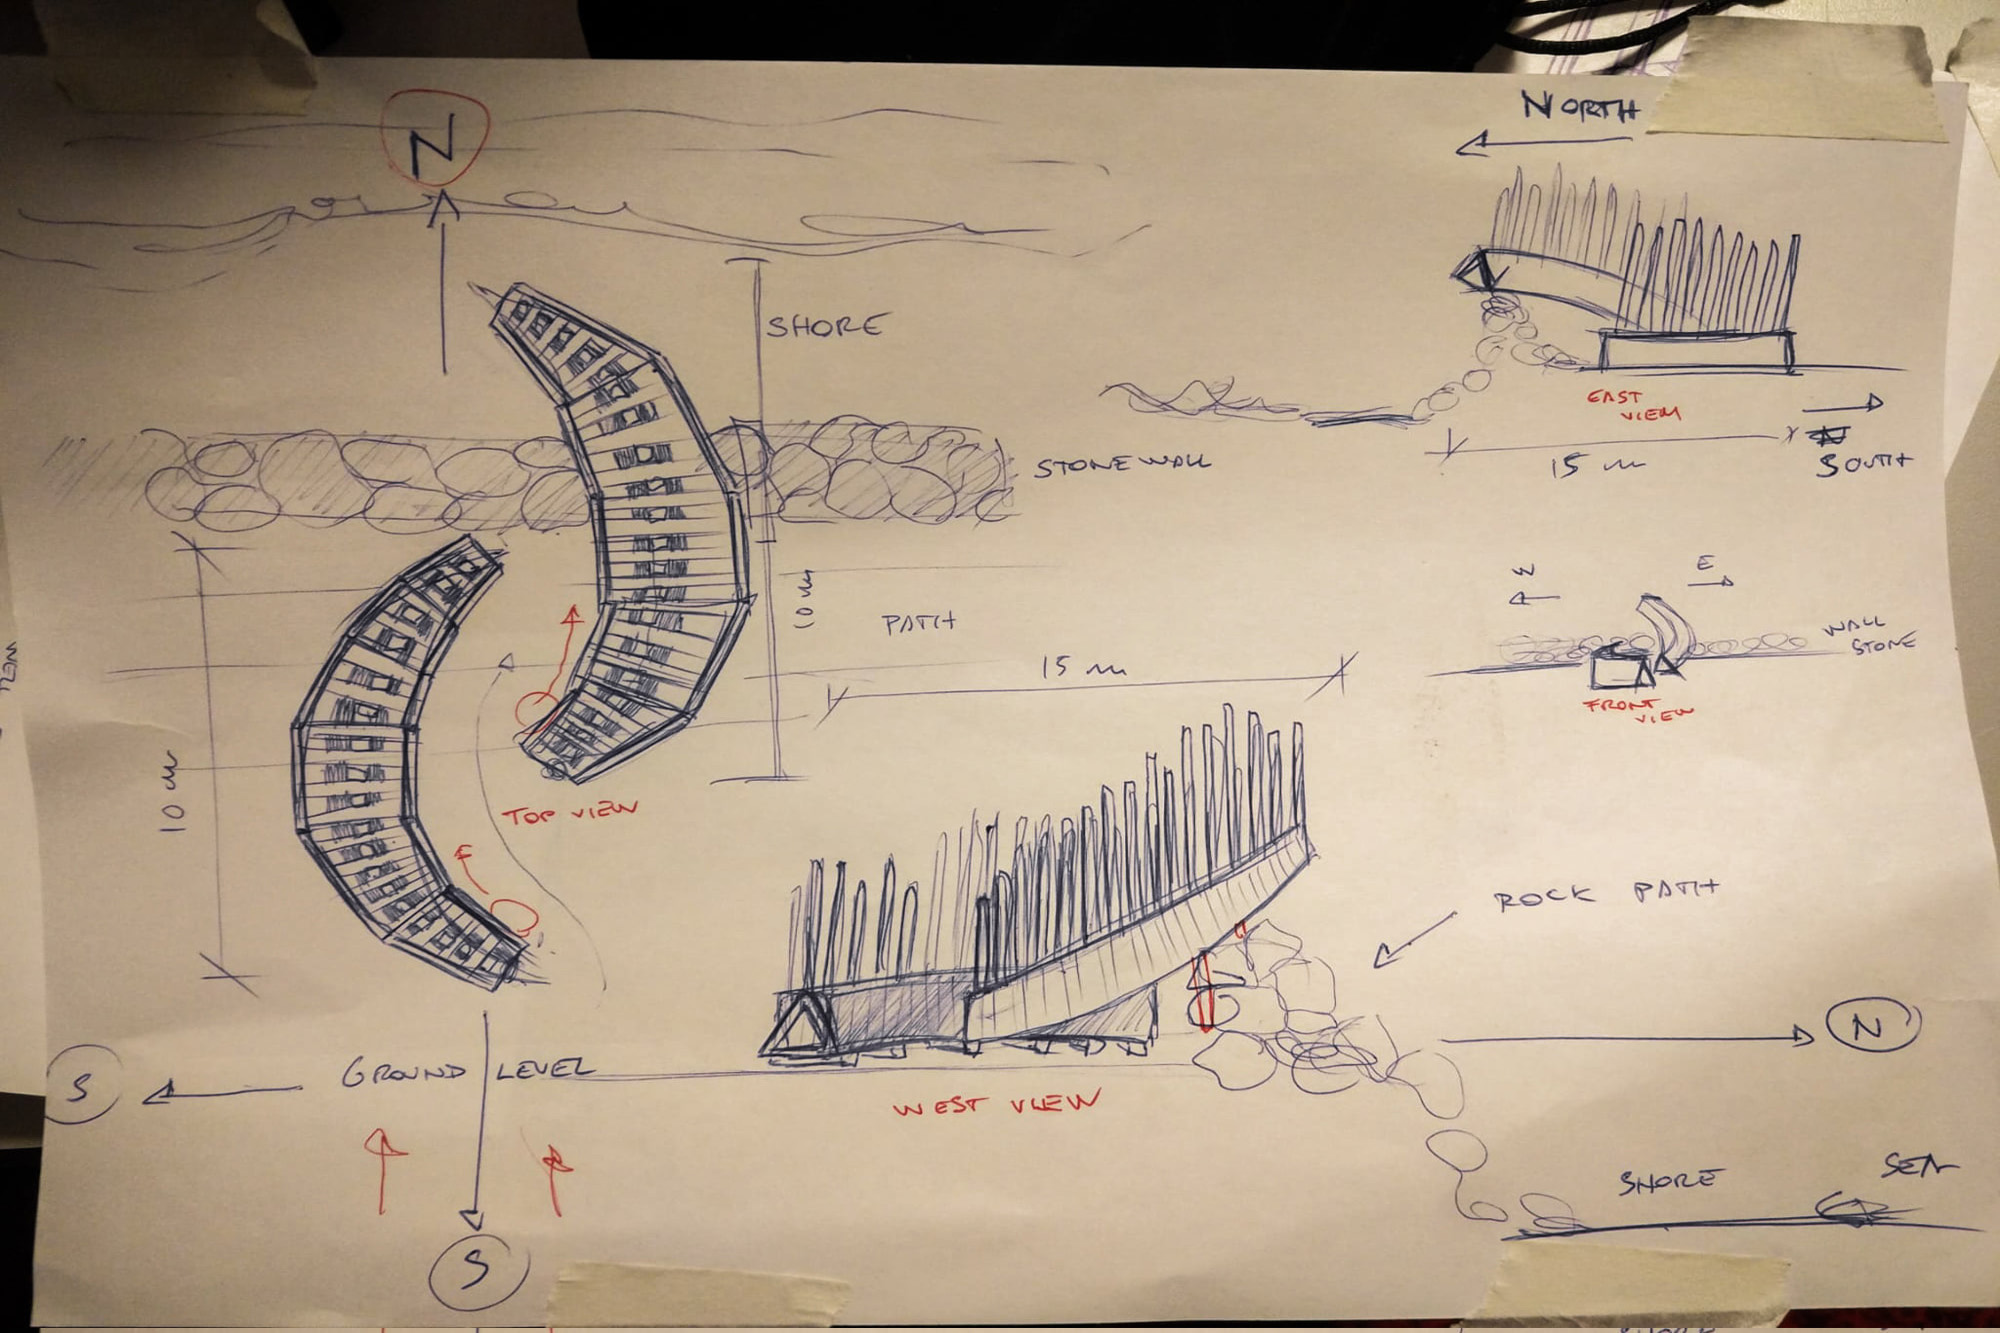 N
NORTH
SHORE
EAST
VIEW
15 m
SOUTH
STONEWALL
W
E
WALL
STONE
FRONT
VIEW
10 m
PATH
15 m
10 m
TOP VIEW
ROCK PATH
N
S
GROUND LEVEL
WEST VIEW
SHORE
SEA
S